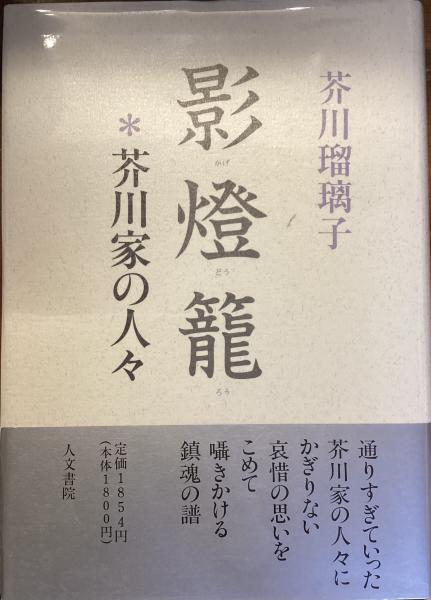 芥川瑠璃子
影燈籠
かげ
どう
ろう
＊芥川家の人々
通りすぎていった
芥川家の人々に
かぎりない
哀惜の思いを
こめて
囁きかける
鎮魂の譜
定価1854円
(本体1800円)
人文書院